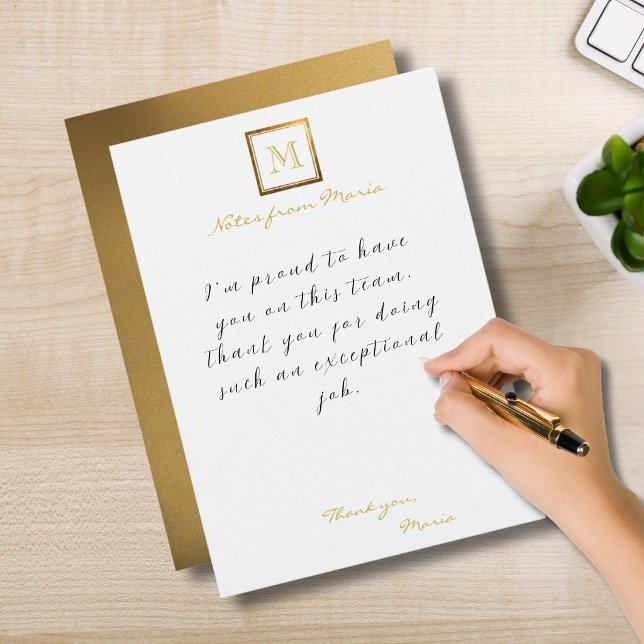 M
Notes from Maria
I'm proud to have
you on this team.
Thank you for doing
such an exceptional
job.
Thank you,
Maria